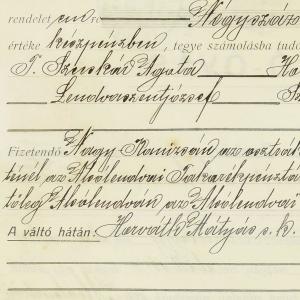 rendelet em re Négyszáz
értéke készpénzben, tegye számolásba tud
T. Szinkár Ágata Ha
Lendvaszentjózsef Sz
Fizetendő Nagy Kanizsán az osztrák
tnél az Alsólendvai Takarékpénztá
tőleg Alsólendván az Alsólendvai
A váltó hátán: Horváth Mátyás s. k.